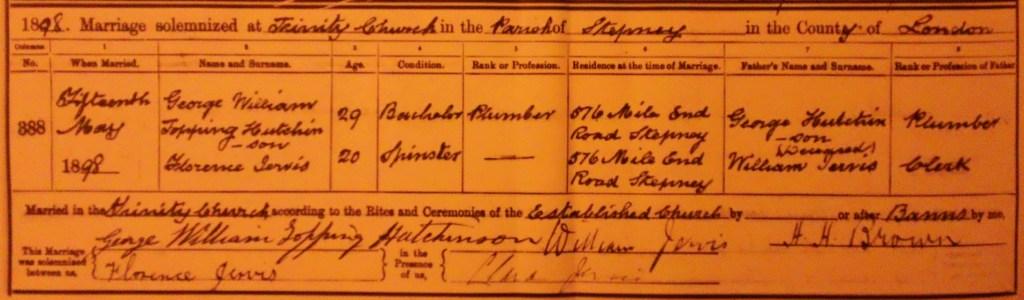 1898. Marriage solemnized at Trinity Church in the Parish of Stepney in the County of London
Columns 1 2 3 4 5 6 7 8
No. When Married. Name and Surname. Age. Condition. Rank or Profession. Residence at the time of Marriage. Father's Name and Surname. Rank or Profession of Father
Fifteenth George William 29 Bachelor Plumber 576 Mile End George Hutchin Plumber
388 May Topping Hutchin Road Stepney -son
-son (Deceased)
1898 Florence Jervis 20 Spinster — 576 Mile End William Jervis Clerk
Road Stepney
Married in the Trinity Church according to the Rites and Ceremonies of the Established Church by or after Banns by me,
George William Topping Hutchinson William Jervis H. H. Brown
This Marriage was solemnized between us, Florence Jervis in the Presence of us, Clara Jervis